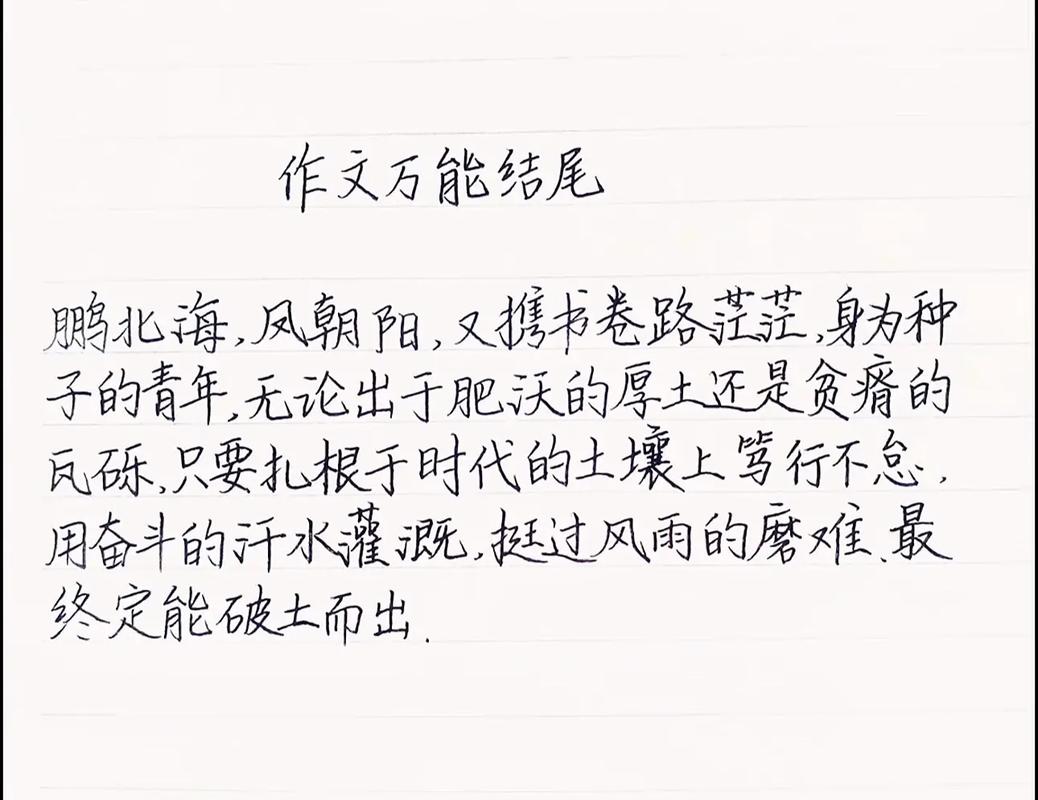 作文万能结尾
鹏北海,凤朝阳,又携书卷路茫茫,身为种
子的青年,无论出于肥沃的厚土还是贫瘠的
瓦砾,只要扎根于时代的土壤上笃行不怠.
用奋斗的汗水灌溉,挺过风雨的磨难、最
终定能破土而出.